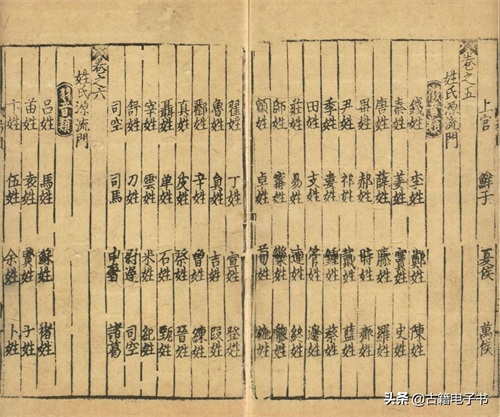 上官 鮮于 夏侯 萬俟
卷之五
姓氏源流門
錢姓 李姓 鄭姓 陳姓
秦姓 姜姓 竇姓 史姓
廖姓 薛姓 滕姓 羅姓
畢姓 郝姓 時姓 齊姓
尹姓 祁姓 戴姓 藍姓
季姓 婁姓 鍾姓 蔡姓
田姓 支姓 管姓 邊姓
莊姓 易姓 連姓 終姓
師姓 甯姓 欒姓 黎姓
簡姓 卓姓 荀姓 姓
翟姓 丁姓 宣姓 登姓
魯姓 負姓 吉姓 段姓
酈姓 辛姓 曾姓 練姓
真姓 皮姓 祭姓 晉姓
聶姓 單姓 石姓 甄姓
宰姓 雲姓 米姓 紀姓
舒姓 刀姓 尉遲 司空
司空 司馬 申屠 諸葛
卷之六
姓氏源流門
羽音類
呂姓 馬姓 蘇姓 褚姓
苗姓 袁姓 費姓 于姓
卞姓 伍姓 余姓 卜姓
头条 @古籍电子书